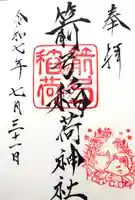 奉拝
箭弓稲荷神社
令和七年七月三十一日
箭弓稲荷